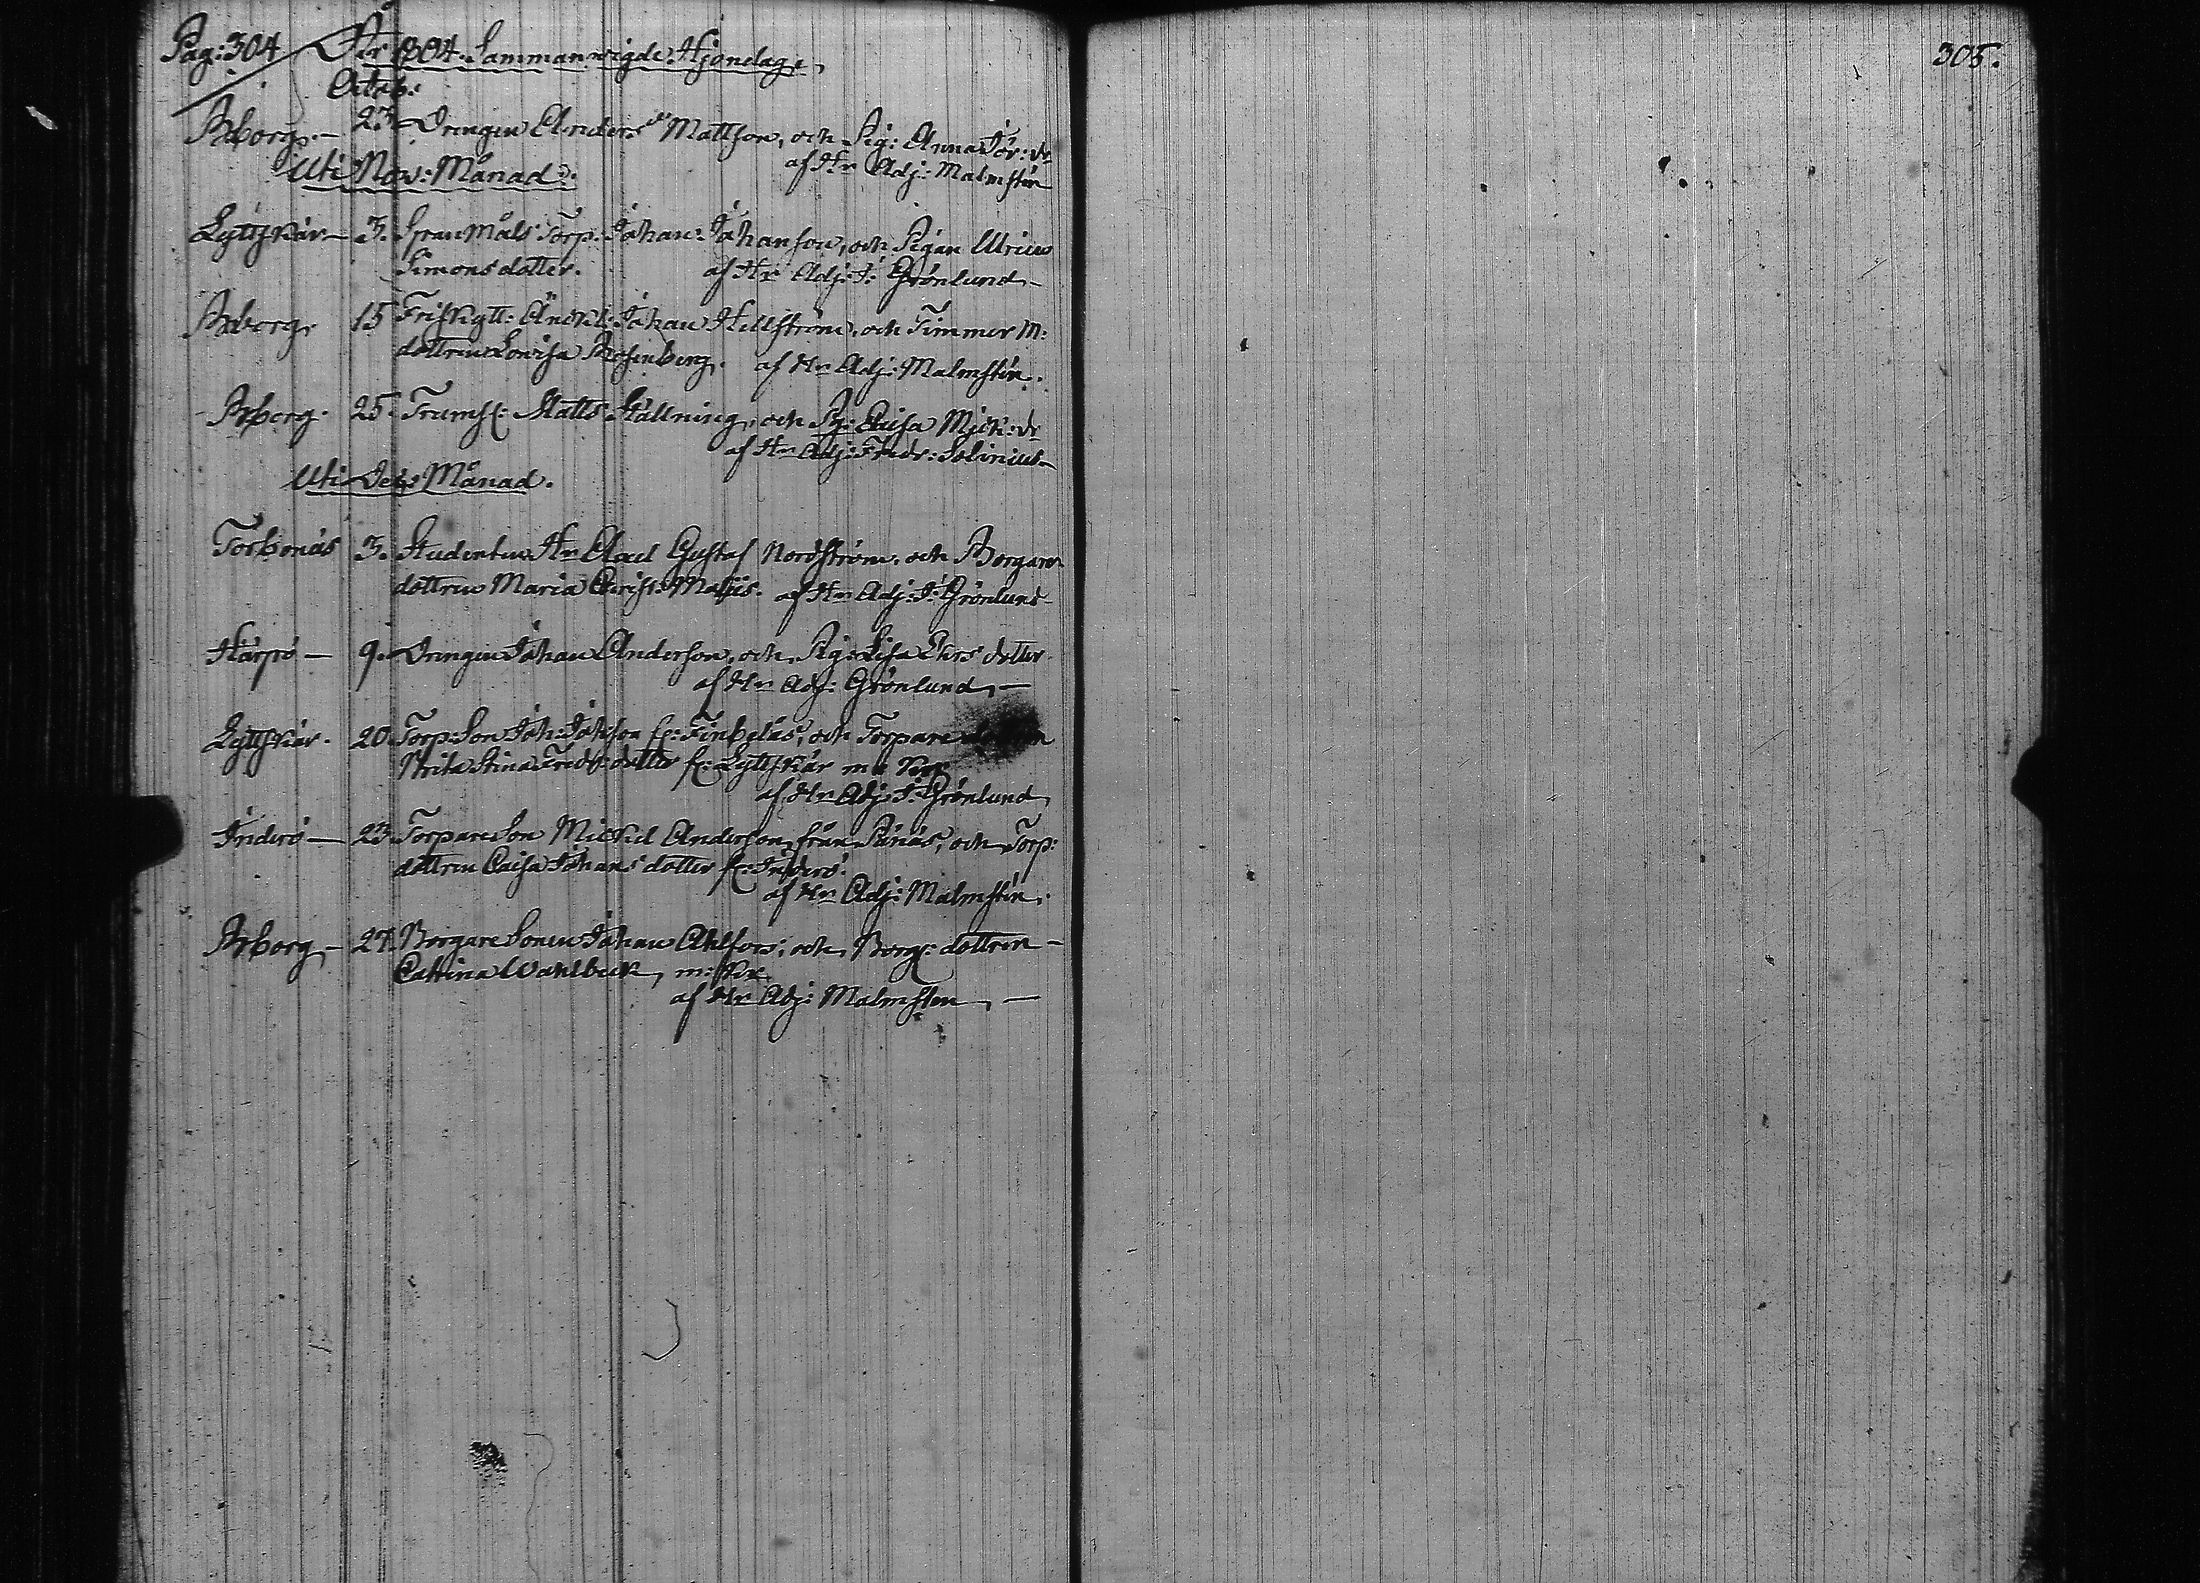 Pag: 304 År 1804. Sammanwigde Hjonelag,
Octob:
Borg. – 23. Drengen Anders Mattson, och Pig: Anna Jör: dr
af Hr Adj: Malmstén
Uti Nov: Månad:
Lyttskär – 3. Torp: Johan: Johanson, och Pigan Ulrica
Simons dotter. af Hr Adj: J: Grönlund –
Bborg. 15 Friskytt: Änckl: Johan Hellström, och Timmer M:
dottren Lovisa Rosenberg. af Hr Adj: Malmstén.
Bborg. 25. Trumsl: Matts Hällning, och Pig: Caisa Mick: dr
af Hr Adj: Fredr: Selinius –
Uti Dec: Månad.
Torbonäs 3. Studenten Hr Axel Gustaf Nordström, och Borgare
dottren Maria Christ: af Hr Adj: J: Grönlund
Härpö – 9. Drengen Johan Anderson, och Pig: Lisa Ers dotter
af Hr Adj: Grönlund, –
Lyttskär. 20. Torp: Son Joh: Johson fr: och Torpare
Brita Stina Fredr: dotter fr: Lyttskär
af Hr Adj: J: Grönlund
Inderö – 23. Torpare Son Mickel Anderson från och Torp:
dottren Caisa Johans dotter fr: Inderö.
af Hr Adj: Malmstén.
Bborg – 27. Borgare Sonen Johan Ahlfors; och Borg: dottren –
Cattrina Wahlbeck,
af Hr Adj: Malmsten, –
305.